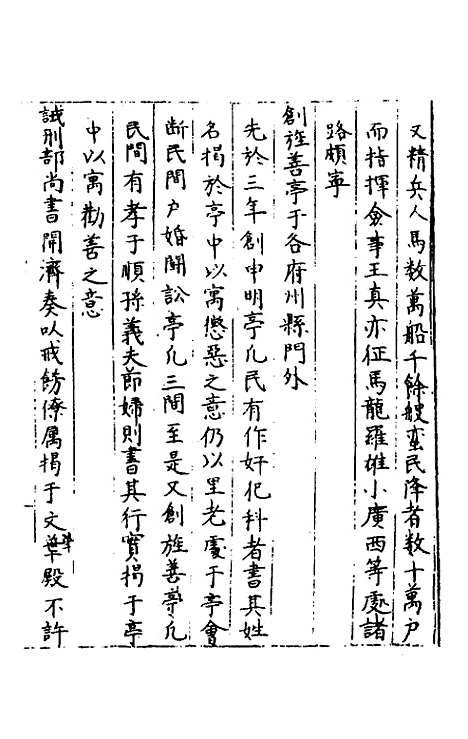 又精兵人馬数萬船千餘艘蛮民降者数十萬户
而指揮僉事王真亦征馬龍羅雄小廣西等處諸
路頗寧
創旌善亭于各府州縣門外
先於三年創申明亭凡民有作奸犯科者書其姓
名揭於亭中以寓懲惡之意仍以里老處于亭會
断民間户婚閗訟亭凡三間至是又創旌善亭凡
民間有孝子順孫義夫節婦則書其行實揭于亭
中以寓勸善之意
誡刑部尚書開濟奏以戒飭僚属揭于文華殿不許